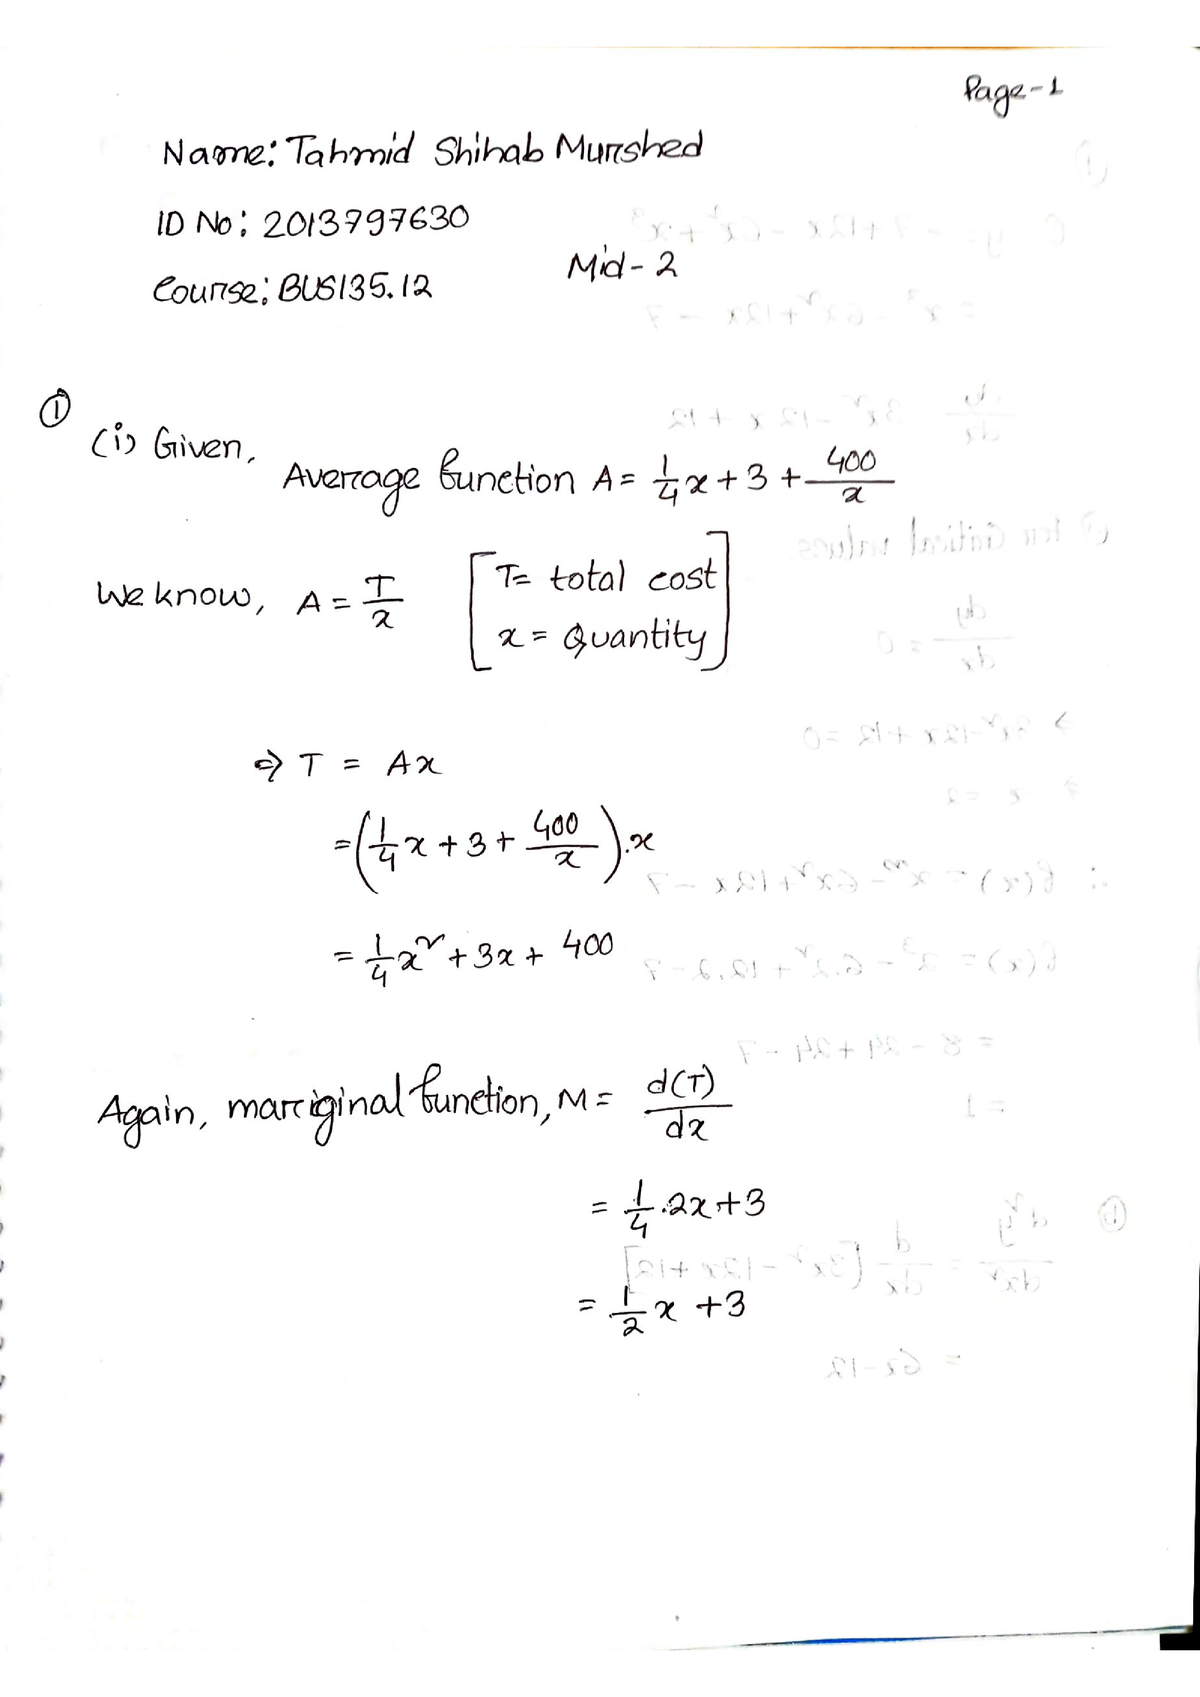 Page-1
Name: Tahmid Shihab Murshed
ID No: 2013797630
Mid-2
Course: BUS135.12
①
(i) Given,
Average function A = 1/4 x + 3 + 400/x
We know, A = T/x [T = total cost
x = Quantity]
⇒ T = Ax
= (1/4 x + 3 + 400/x).x
= 1/4 x² + 3x + 400
Again, marginal function, M = d(T)/dx
= 1/4 .2x+3
= 1/2 x +3